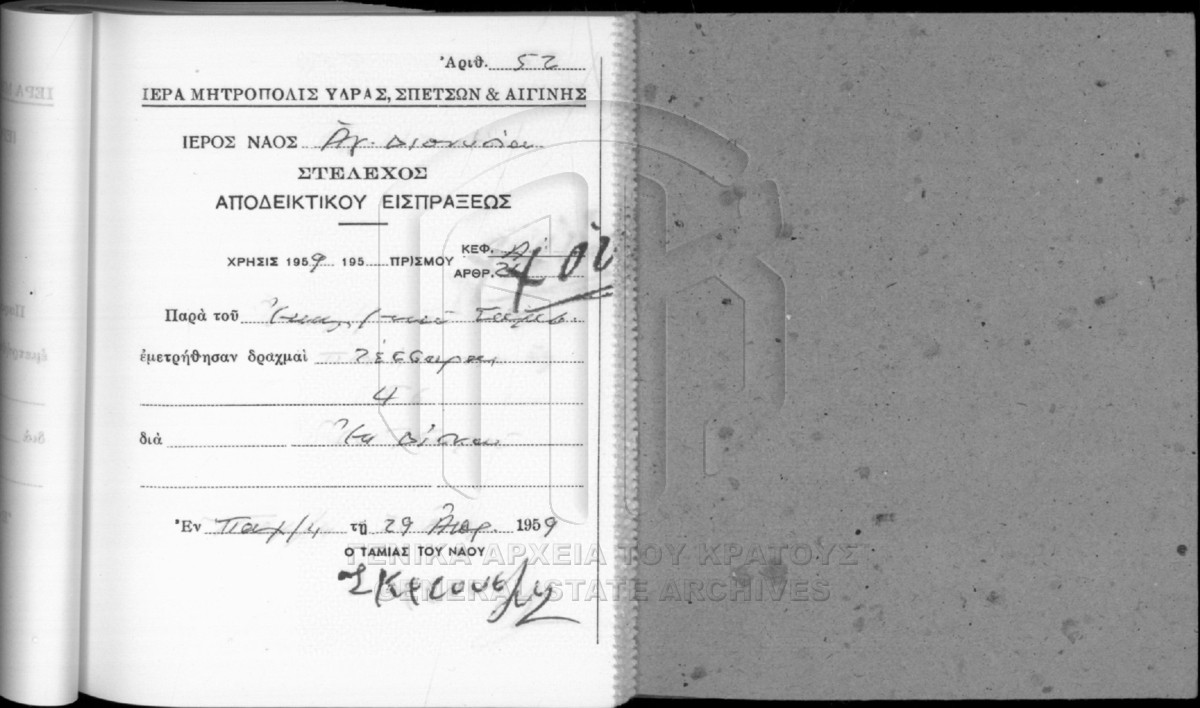 Ἀριθ. 52
ΙΕΡΑ ΜΗΤΡΟΠΟΛΙΣ ΥΔΡΑΣ, ΣΠΕΤΣΩΝ & ΑΙΓΙΝΗΣ
ΙΕΡΟΣ ΝΑΟΣ Ἁγ. Διονυσίου
ΣΤΕΛΕΧΟΣ
ΑΠΟΔΕΙΚΤΙΚΟΥ ΕΙΣΠΡΑΞΕΩΣ
ΚΕΦ. Α
ΧΡΗΣΙΣ 1959 195 ΠΡΙΣΜΟΥ ΑΡΘΡ.
Παρὰ τοῦ
ἐμετρήθησαν δραχμαὶ τέσσαρες
4
διὰ δίσκου
Ἐν τῇ 29 Ἀπρ. 1959
Ο ΤΑΜΙΑΣ ΤΟΥ ΝΑΟΥ
ΓΕΝΙΚΑ ΑΡΧΕΙΑ ΤΟΥ ΚΡΑΤΟΥΣ
GENERAL STATE ARCHIVES